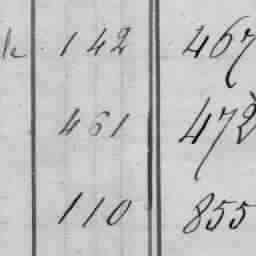 142 467
461 472
110 855